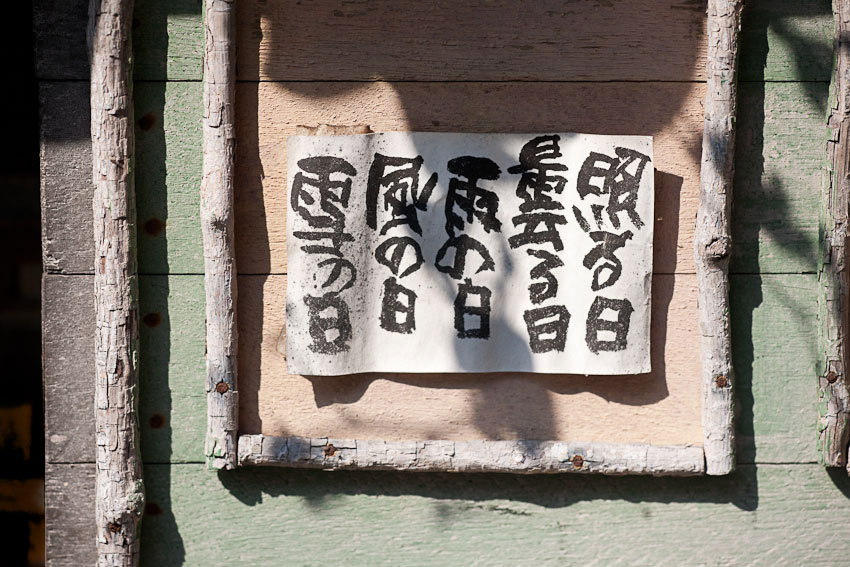 照る日
曇る日
雨の日
風の日
雪の日